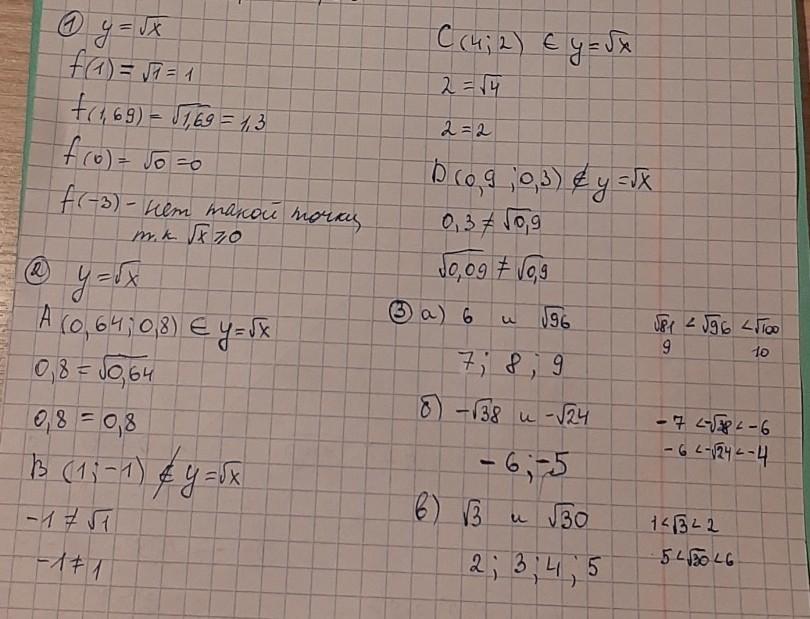 ① y = √x
f(1) = √1 = 1
f(1,69) = √1,69 = 1,3
f(0) = √0 = 0
f(-3) - нет такой точки,
т.к. √x ≥ 0
② y = √x
A (0,64; 0,8) ∈ y = √x
0,8 = √0,64
0,8 = 0,8
B (1; -1) ∉ y = √x
-1 ≠ √1
-1 ≠ 1
C (4; 2) ∈ y = √x
2 = √4
2 = 2
D (0,9; 0,3) ∉ y = √x
0,3 ≠ √0,9
√0,09 ≠ √0,9
③ а) 6 и √96 √81 < √96 < √100
7; 8; 9 9 10
б) -√38 и -√24 -7 < -√38 < -6
-6; -5 -6 < -√24 < -4
в) √3 и √30 1 < √3 < 2
2; 3; 4; 5 5 < √30 < 6